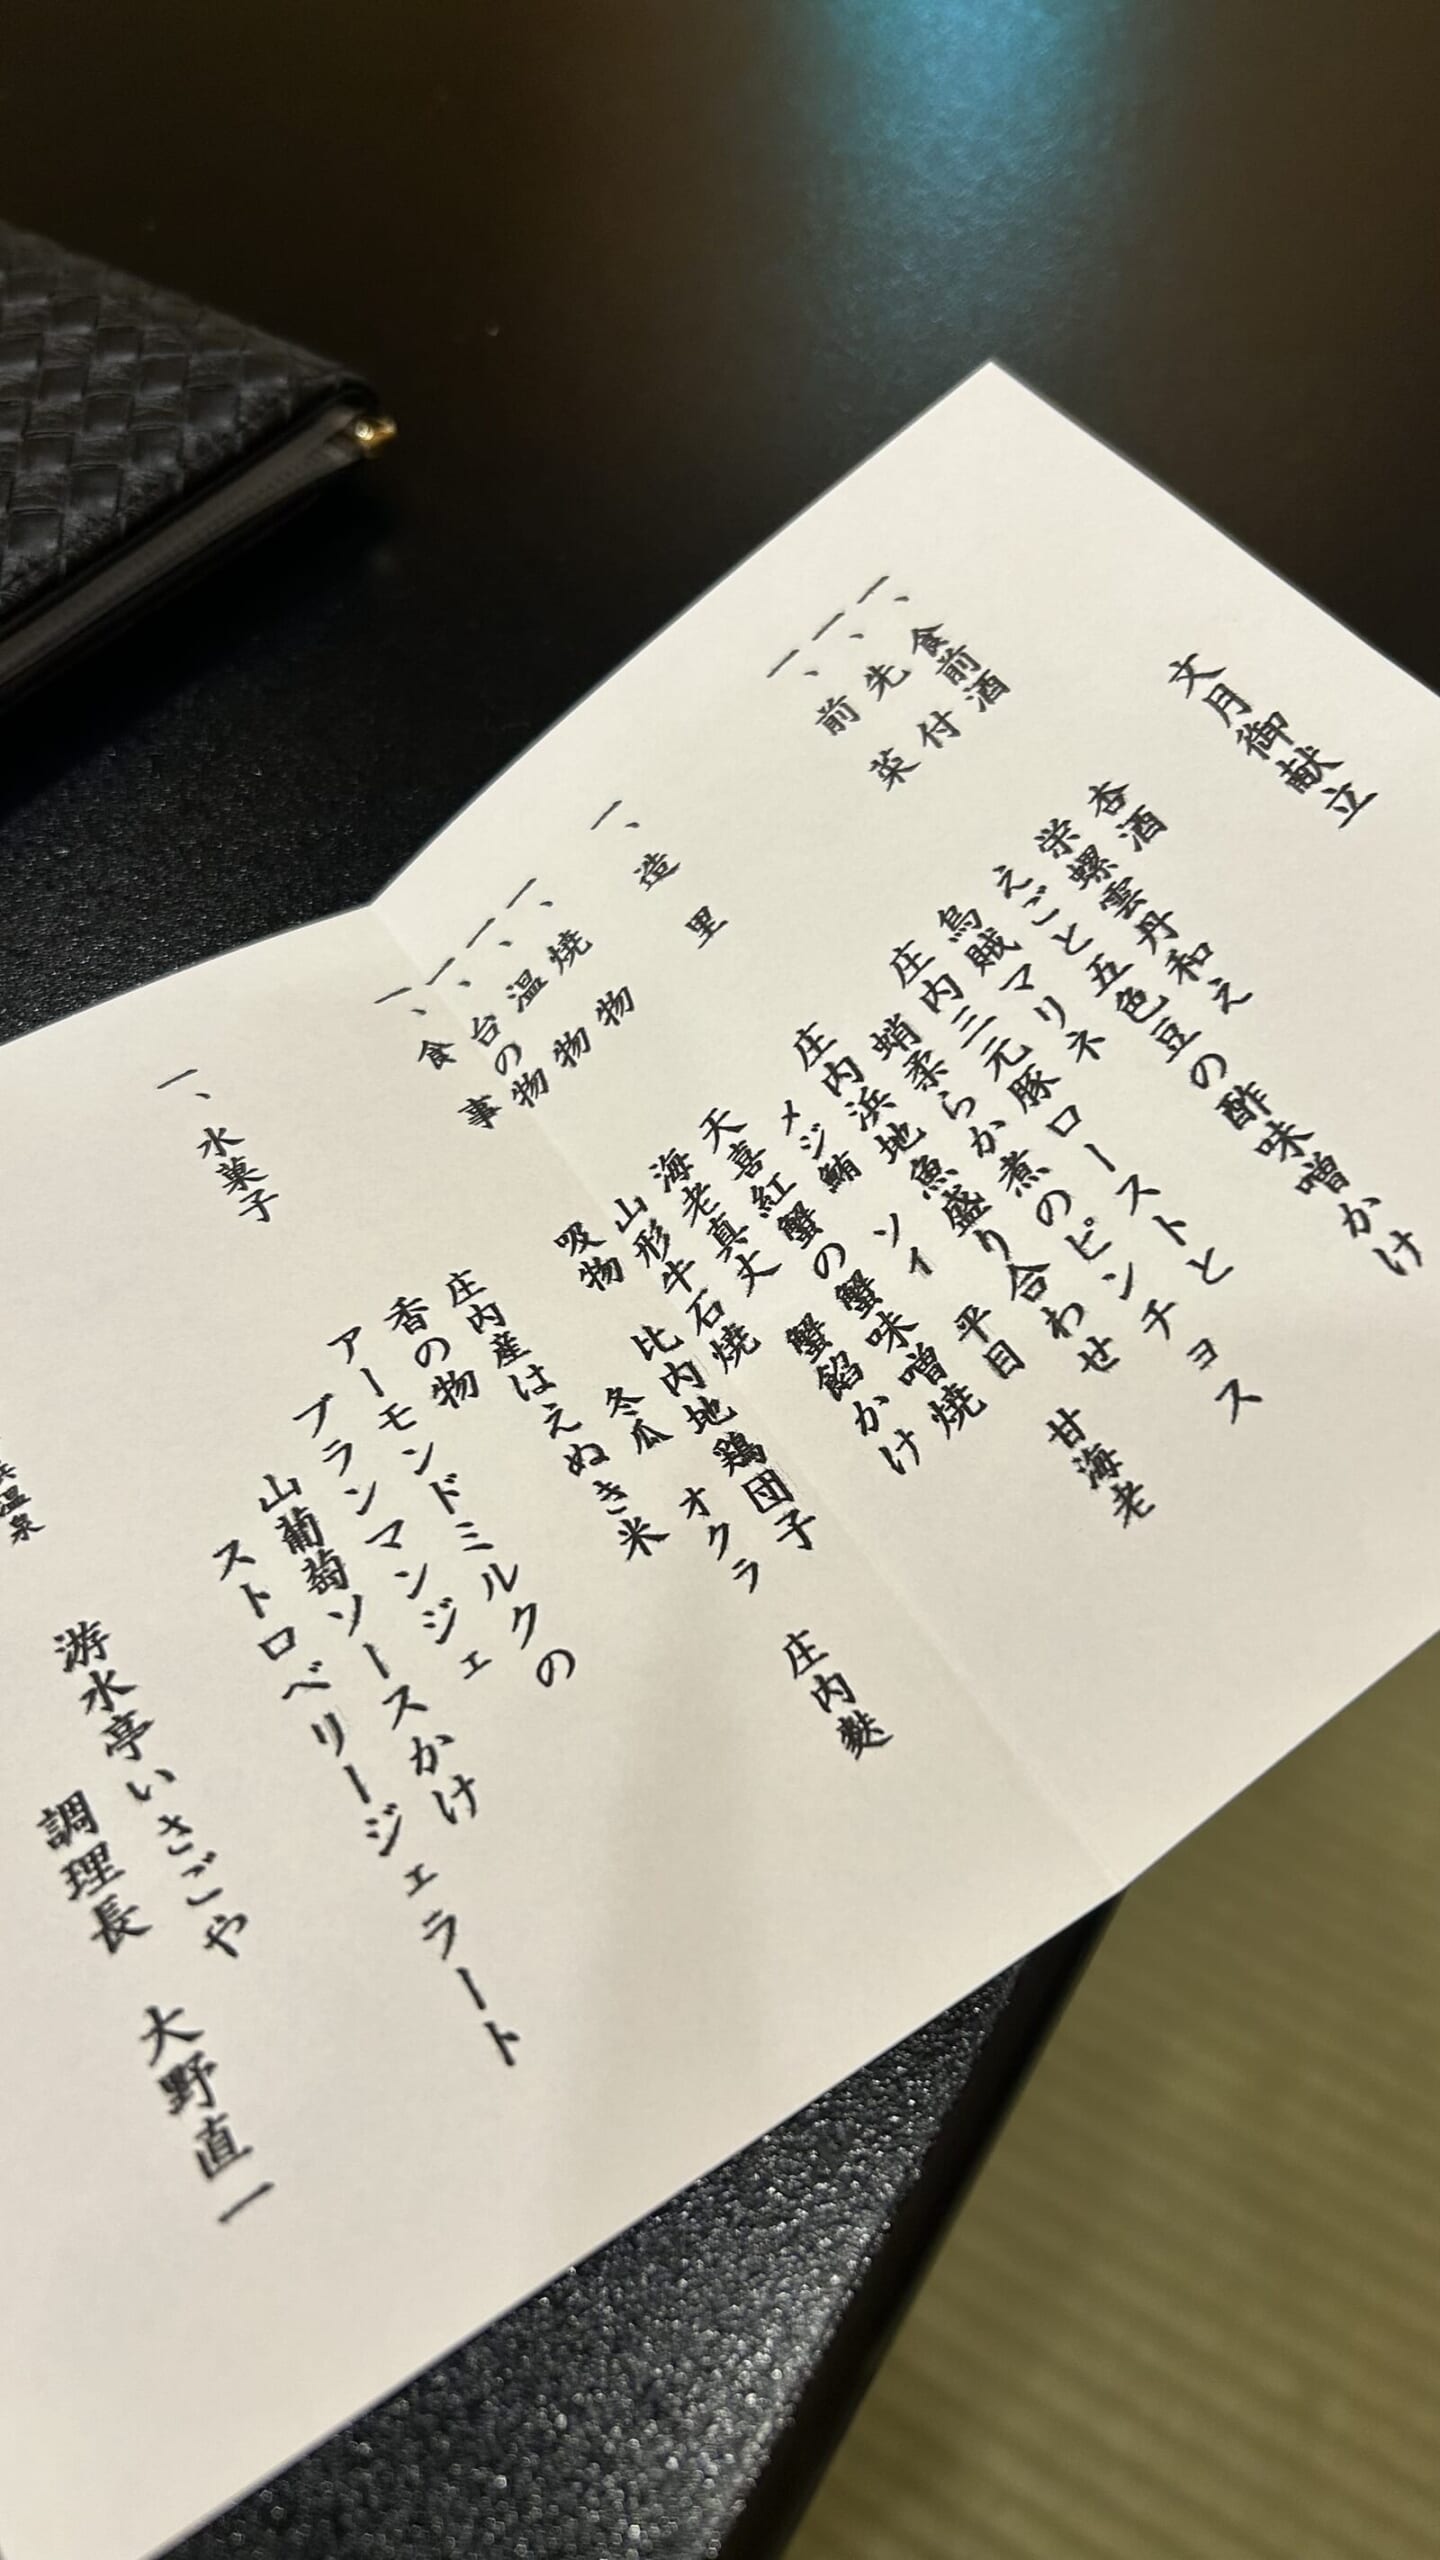 文月御献立
一、食前酒 杏酒
一、先付 栄螺雲丹和え
えごと五色豆の酢味噌かけ
一、前菜 烏賊マリネ
庄内三元豚ローストと
蛸柔らか煮のピンチョス
一、造里 庄内浜地魚盛り合わせ
メジ鮪 ソイ 平目 甘海老
一、焼物 天喜紅蟹の蟹味噌焼
一、温物 海老真丈 蟹餡かけ
一、台の物 山形牛石焼
一、食事 吸物 比内地鶏団子
冬瓜 オクラ 庄内麩
庄内産はえぬき米
香の物
一、水菓子 アーモンドミルクの
ブランマンジェ
山葡萄ソースかけ
ストロベリージェラート
温泉
游水亭いさごや
調理長 大野直一